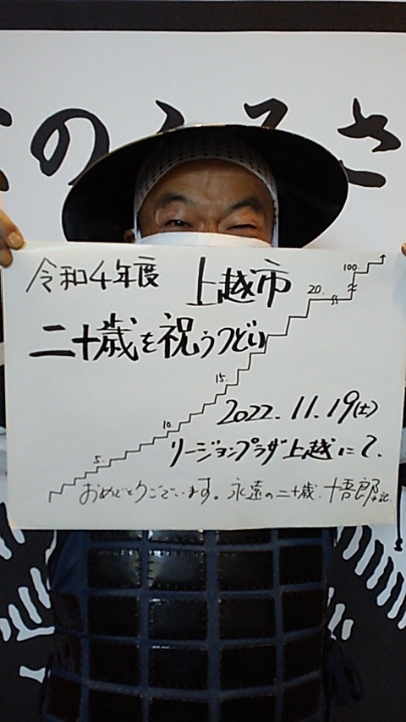 のふるさ
令和4年度 上越市
二十歳を祝うつどい
5.
10.
15.
20.
100
2022.11.19(土)
リージョンプラザ上越にて.
おめでとうございます。永遠の二十歳.十吾郎